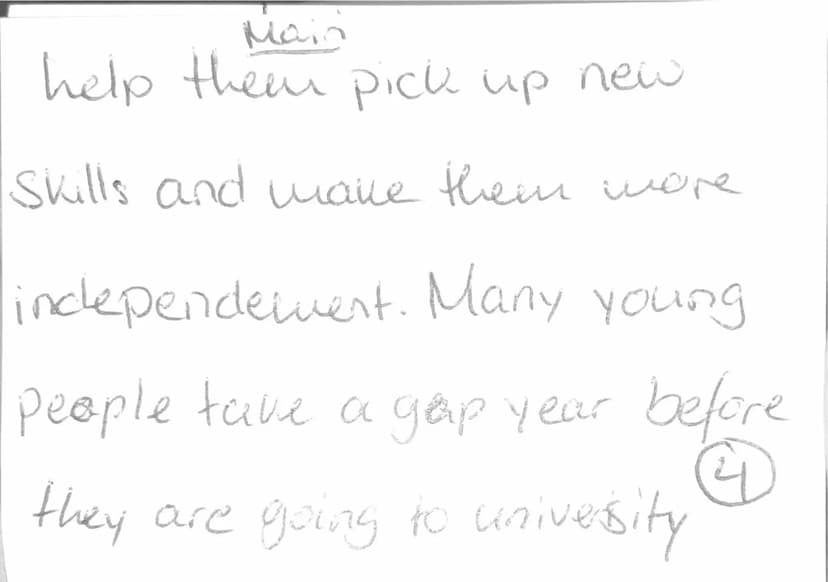 Main
help them pick up new
skills and make them more
independement. Many young
people take a gap year before
they are going to university
4